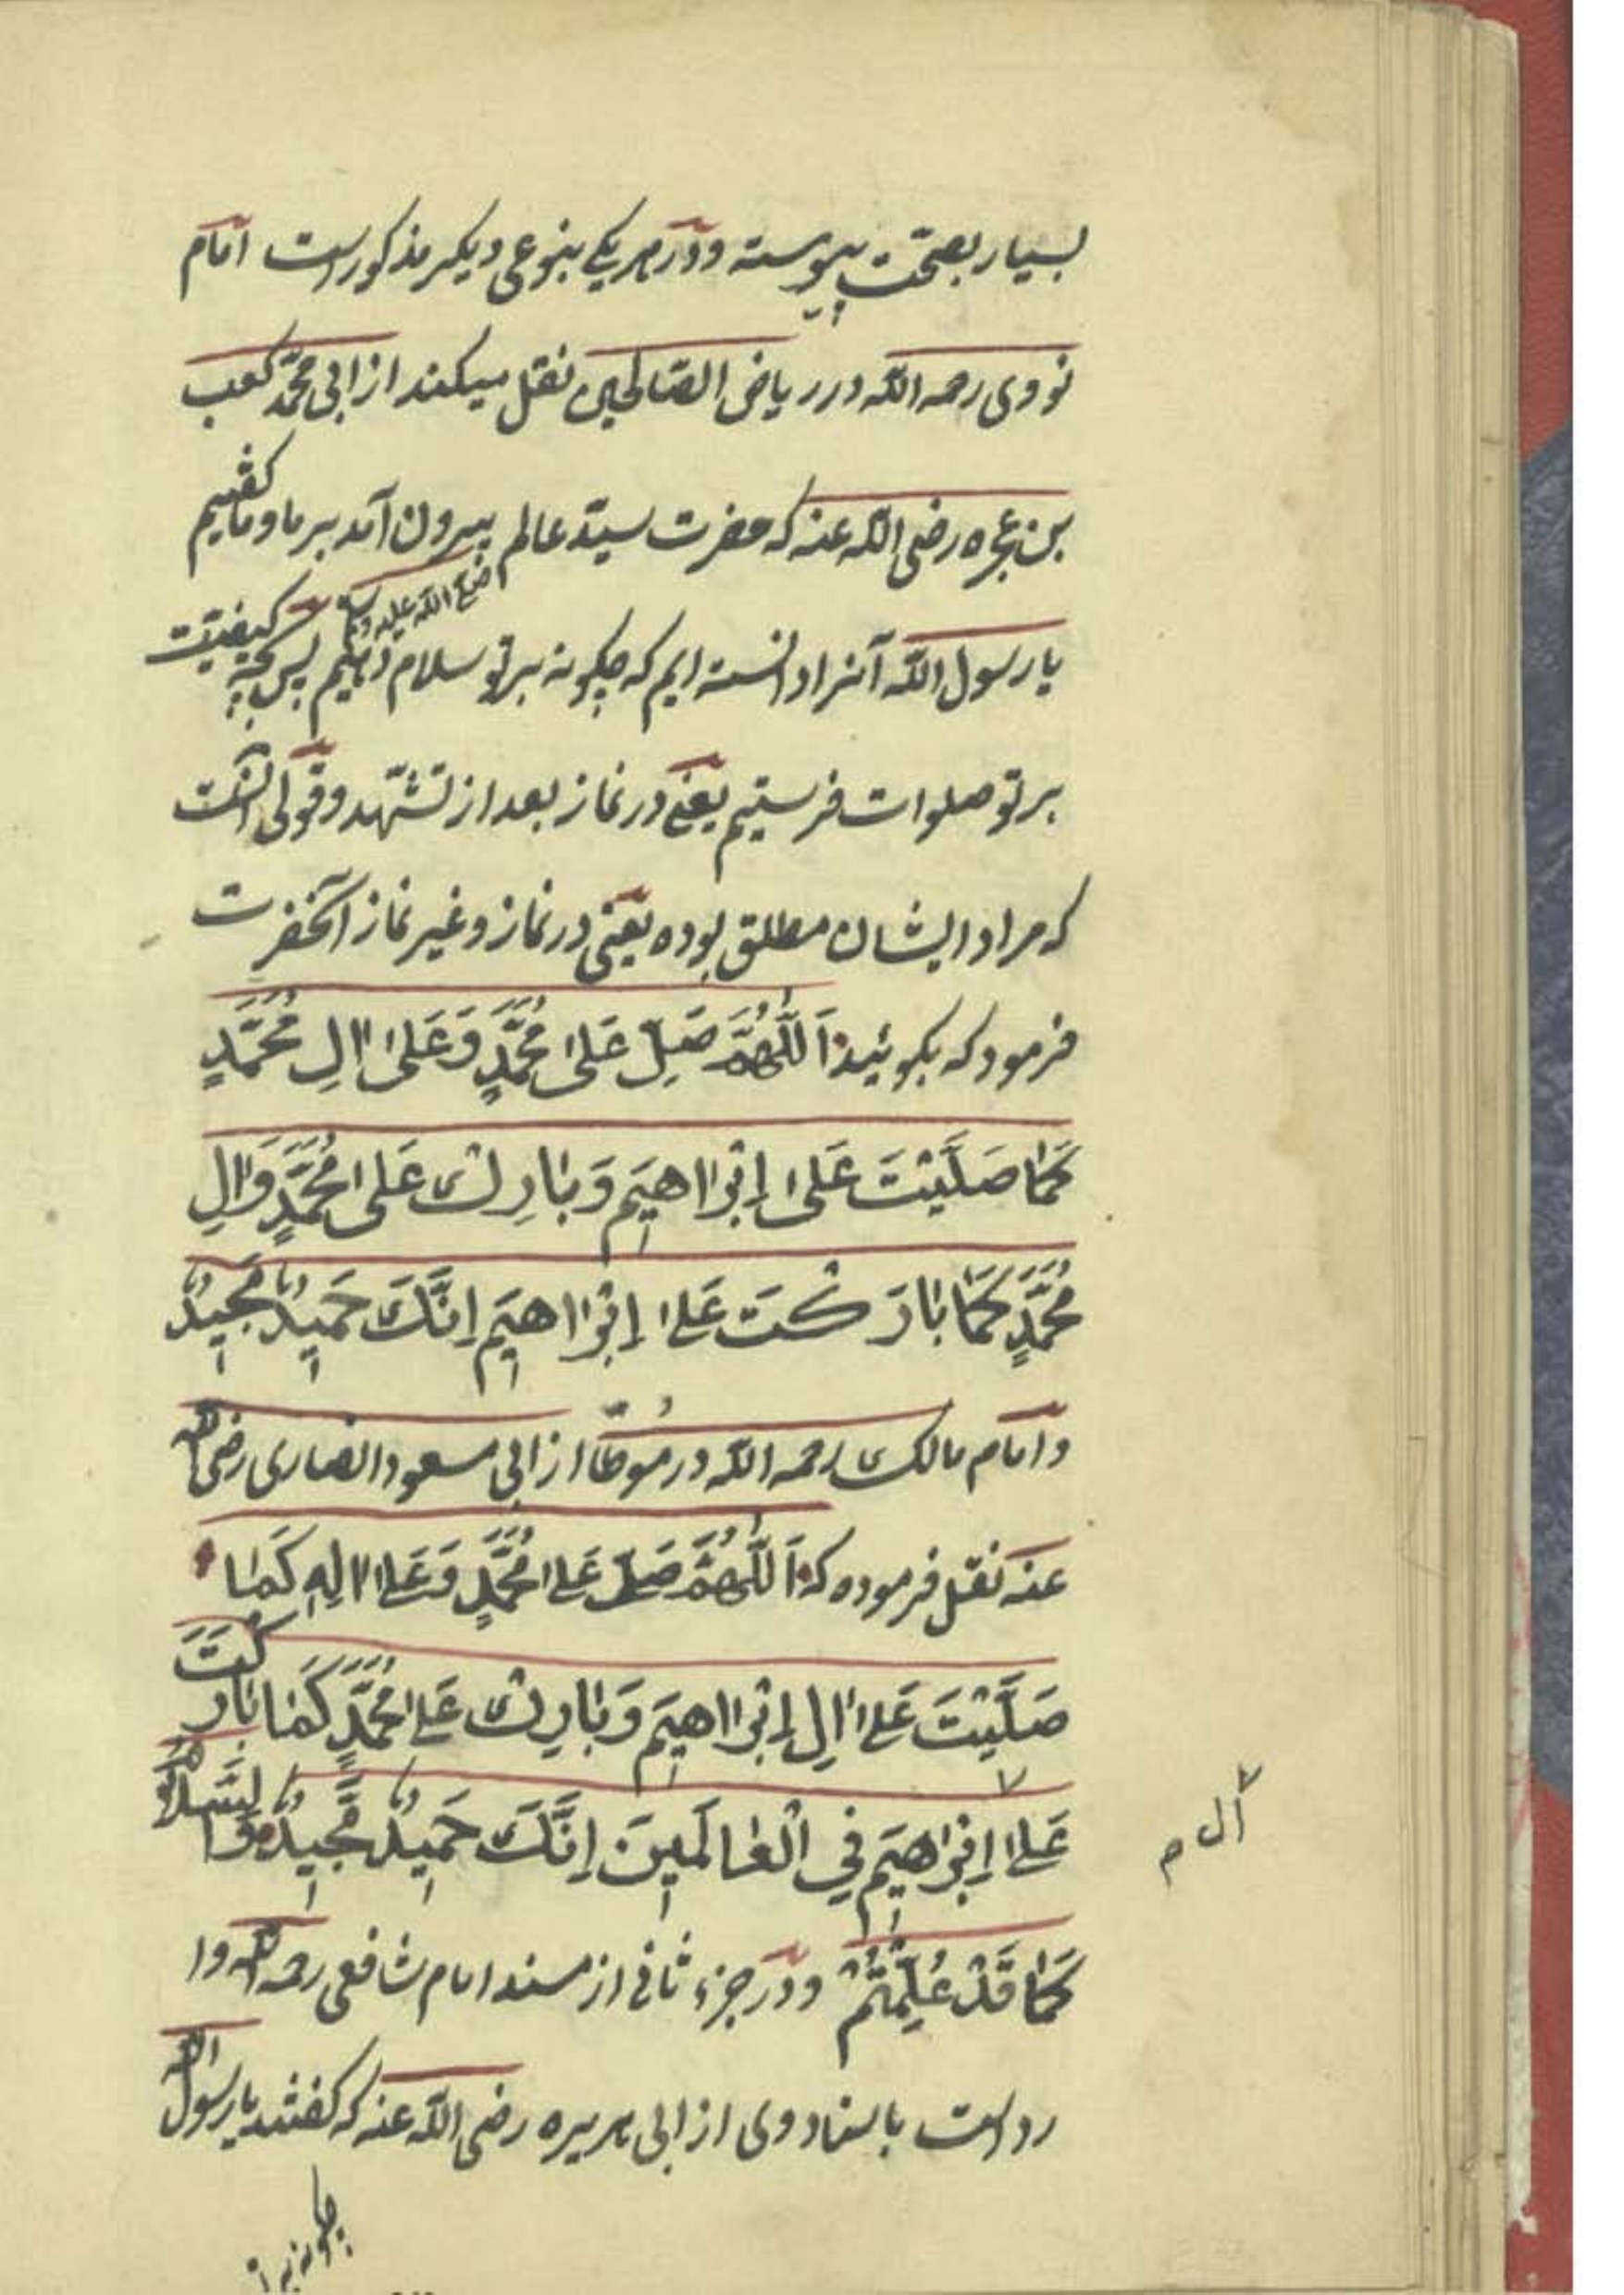 بسیار بصحّت پیوسته ودر هر یکی بنوعی دیکر مذکورست امام
نووی رحمه اللّه در ریاض الصّالحین نقل میکند از ابی محمّد کعب
بن عجره رضی اللّه عنه که حضرت سیّد عالم بیرون آمد بر ما وما کفتیم
صلّی اللّه علیه وسلّم
یا رسول اللّه آنرا دانسته ایم که چکونه بر تو سلام دهیم پس بچه کیفیّت
بر تو صلوات فرستیم یعنی در نماز بعد از تشهّد وقولی آنست
که مراد ایشان مطلق بوده یعنی در نماز وغیر نماز آنحضرت
فرمود که بکوئید اَللّٰهُمَّ صَلِّ عَلىٰ مُحَمَّدٍ وَعَلىٰ اٰلِ مُحَمَّدٍ
كَمٰا صَلَّيْتَ عَلىٰ اِبْرٰاهيمَ وَبٰارِكْ عَلىٰ مُحَمَّدٍ وَاٰلِ
مُحَمَّدٍ كَمٰا بٰارَكْتَ عَلىٰ اِبْرٰاهيمَ اِنَّكَ حَميدٌ مَجيدٌ
وامام مالک رحمه اللّه در مُوطّا از ابی مسعود انصاری رضی اللّه
عنه نقل فرموده که اَللّٰهُمَّ صَلِّ عَلىٰ مُحَمَّدٍ وَعَلىٰ اٰلِهِ كَمٰا
صَلَّيْتَ عَلىٰ اٰلِ اِبْرٰاهيمَ وَبٰارِكْ عَلىٰ مُحَمَّدٍ كَمٰا بٰارَكْتَ
عَلىٰ اِبْرٰاهيمَ فِي الْعٰالَمينَ اِنَّكَ حَميدٌ مَجيدٌ وَالسَّلاٰمُ
آل م
كَمٰا قَدْ عُلِّمْتُمْ ودر جزء ثانی از مسند امام شافعی رحمه اللّه وا
ردست باسناد وی از ابی هریره رضی اللّه عنه که کفتند یا رسول اللّه
چکونه بر تو